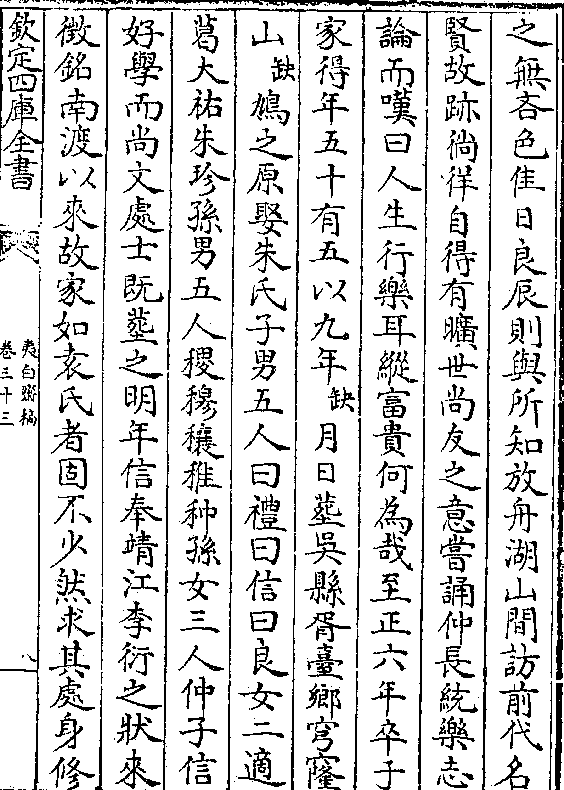 之無吝色佳日良辰則與所知放舟湖山間訪前代名
賢故跡徜徉自得有曠世尚友之意嘗誦仲長統樂志
論而嘆曰人生行樂耳縱富貴何為哉至正六年卒子
家得年五十有五以九年缺月日塟吳縣胥臺鄉穹窿
山缺鳩之原娶朱氏子男五人曰禮曰信曰良女二適
葛大祐朱珍孫男五人稷穆穰稚种孫女三人仲子信
好學而尚文處士既塟之明年信奉靖江李衍之狀來
徵銘南渡以來故家如袁氏者固不少然求其處身修
欽定四庫全書
夷白齋稿
卷三十三
八